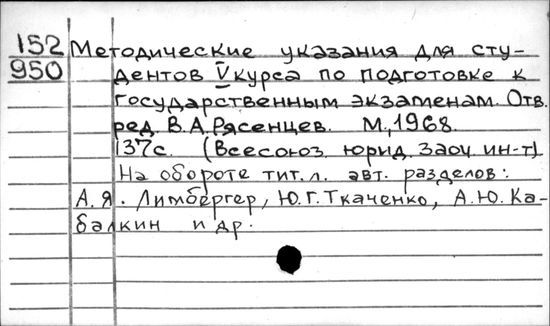 152 Методические указания для сту-
950 дентов V курса по подготовке к
государственным экзаменам. Отв.
ред. В.А.Рясенцев. М.,1968.
137с. (Всесоюз. юрид. заоч. ин-т).
На обороте тит.л. авт. разделов:
А.Я. Лимбергер, Ю.Г.Ткаченко, А.Ю.Ка-
балкин и др.